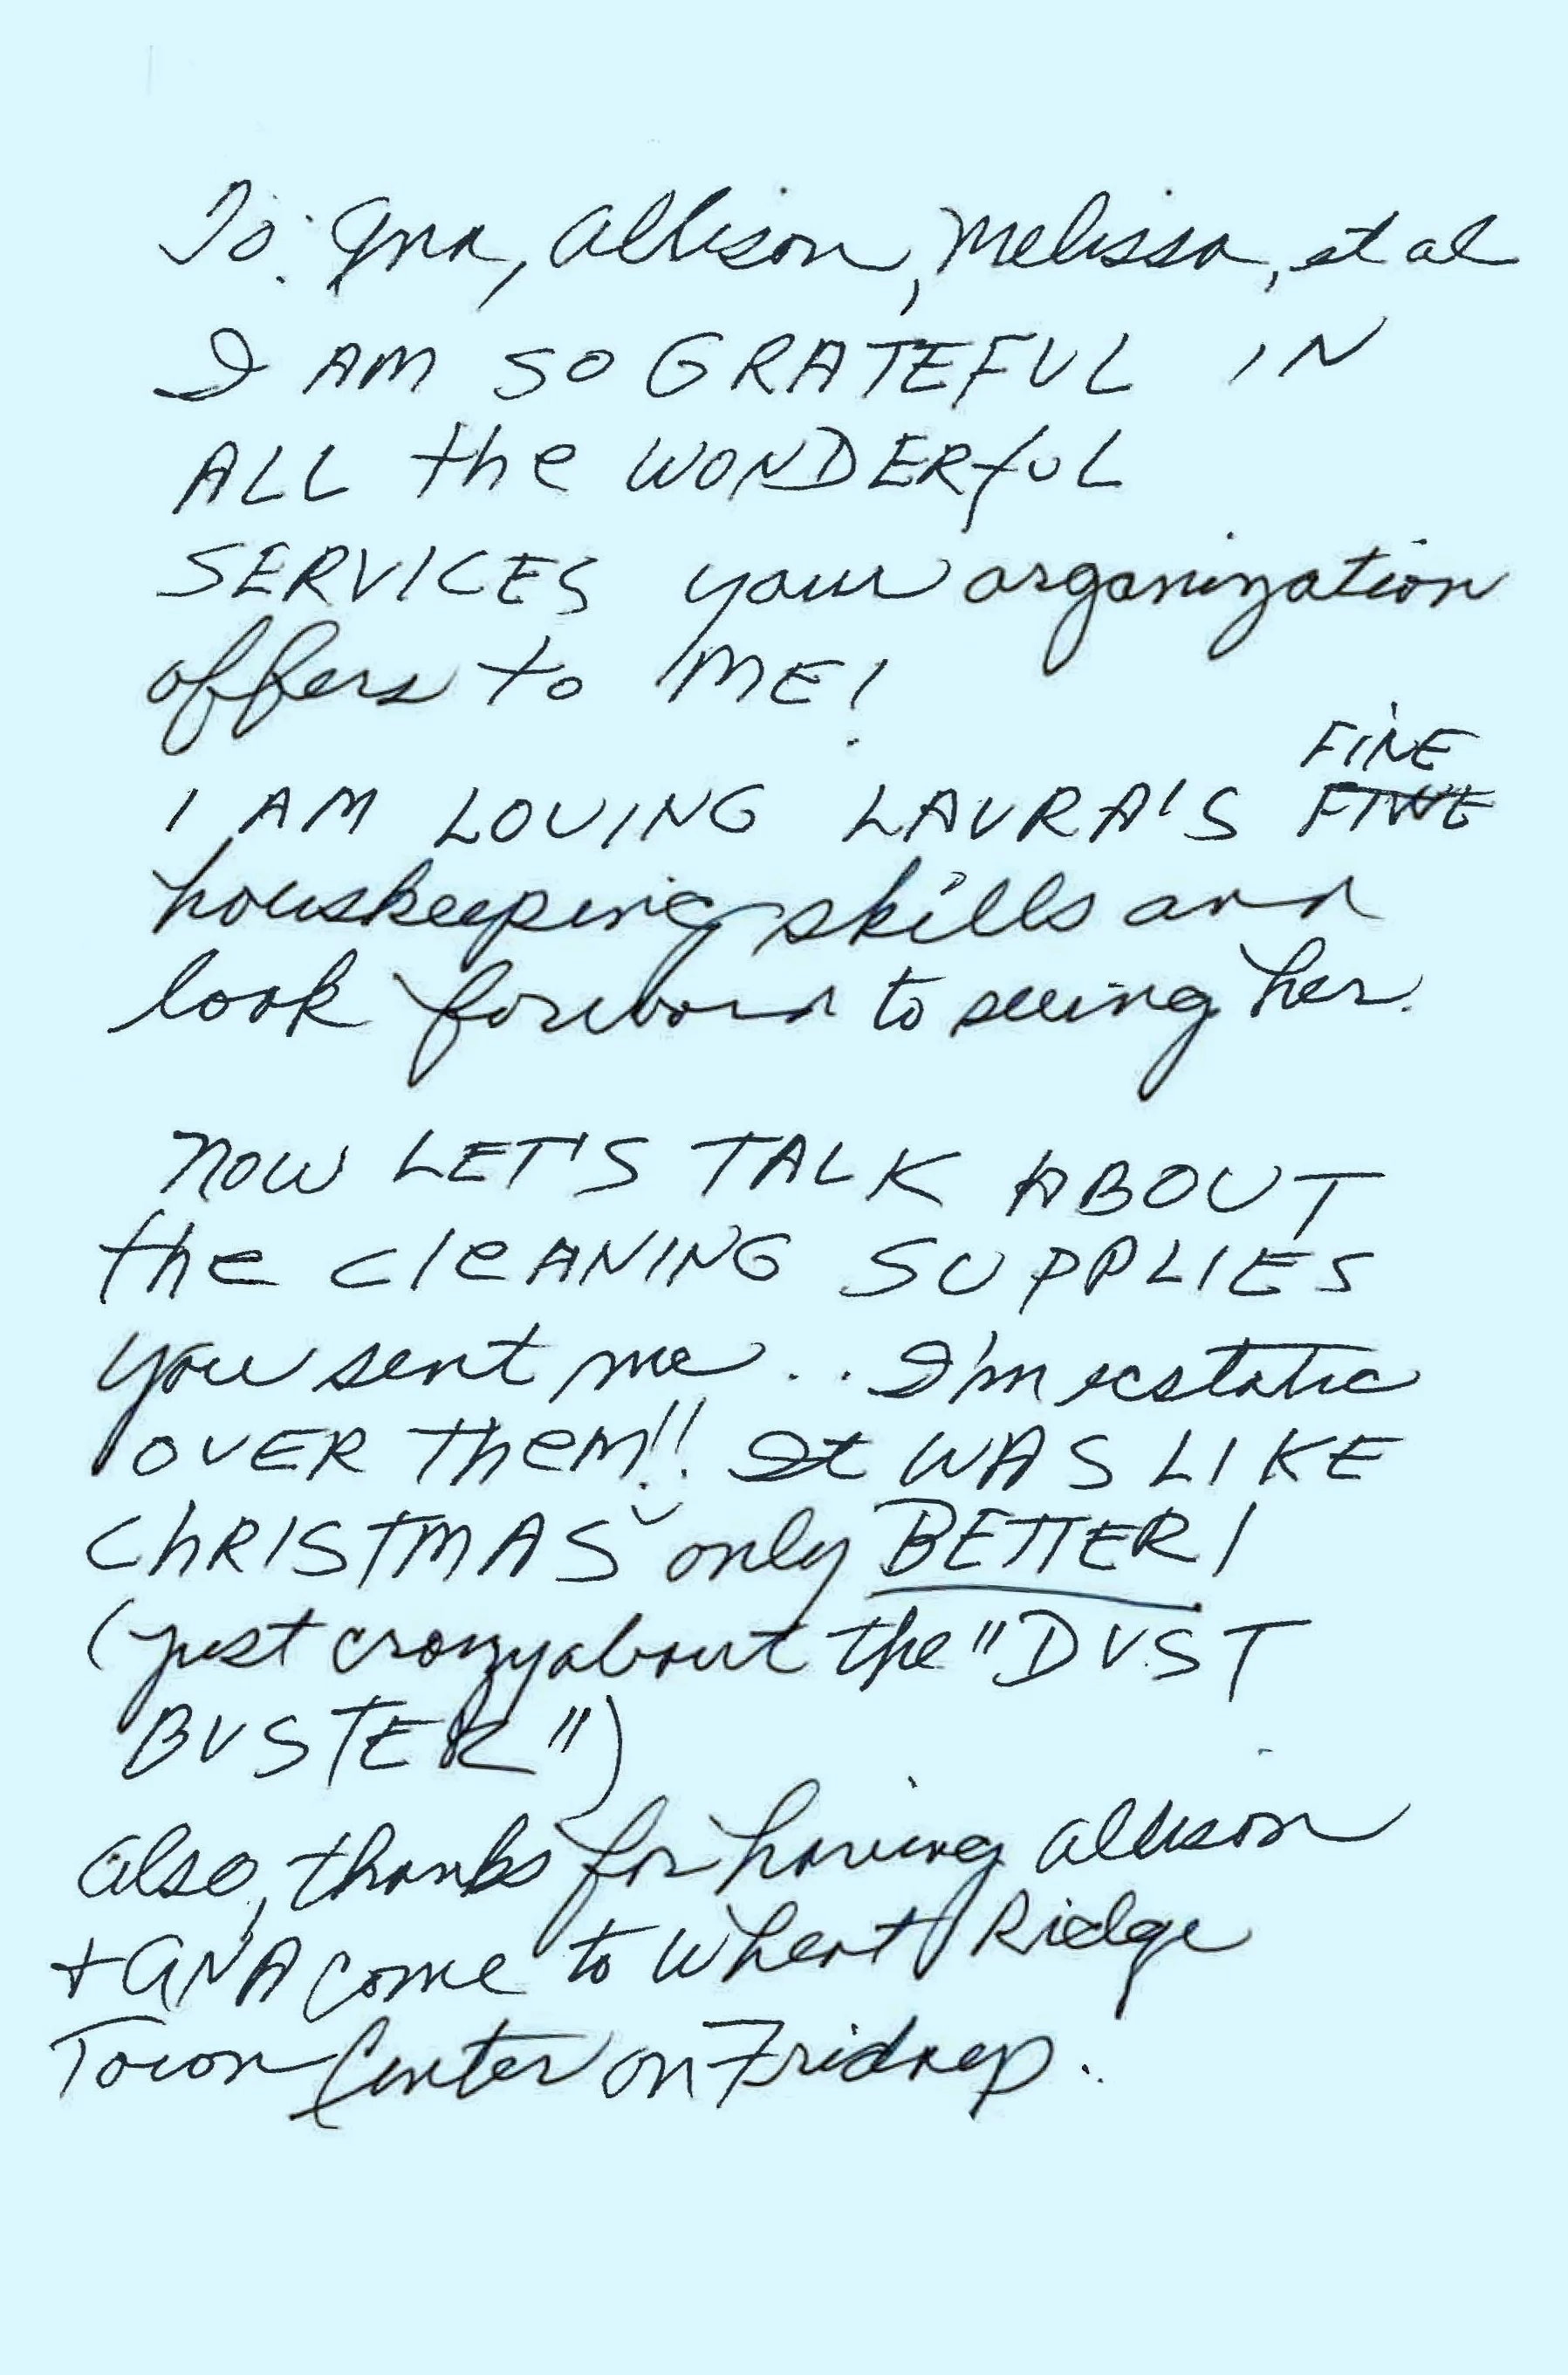 To: Gna, Allison, Melissa, et al
I AM SO GRATEFUL IN
ALL the WONDERfUL
SERVICES your organization
offers to ME!
FINE
I AM LOVING LAURA'S FINE
houskeeping skills and
look forward to seeing her.
NOW LET'S TALK ABOUT
the cleANING SUPPLIES
you sent me... I'm ecstatic
OVER TheM!! It WAS LIKE
ChRISTMAS only BETTER!
(just crazy about the "DUST
BUSTER")
Also, thanks for having Allison
+ GNA come to Wheat Ridge
Town Center on Friday.